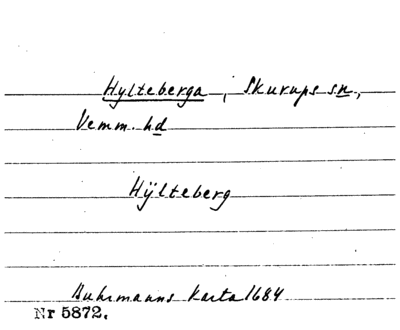 Hylteberga, Skurups sn,
Vemm. hd
Hÿlteberg
Buhrmanns Karta 1684
Nr 5872.